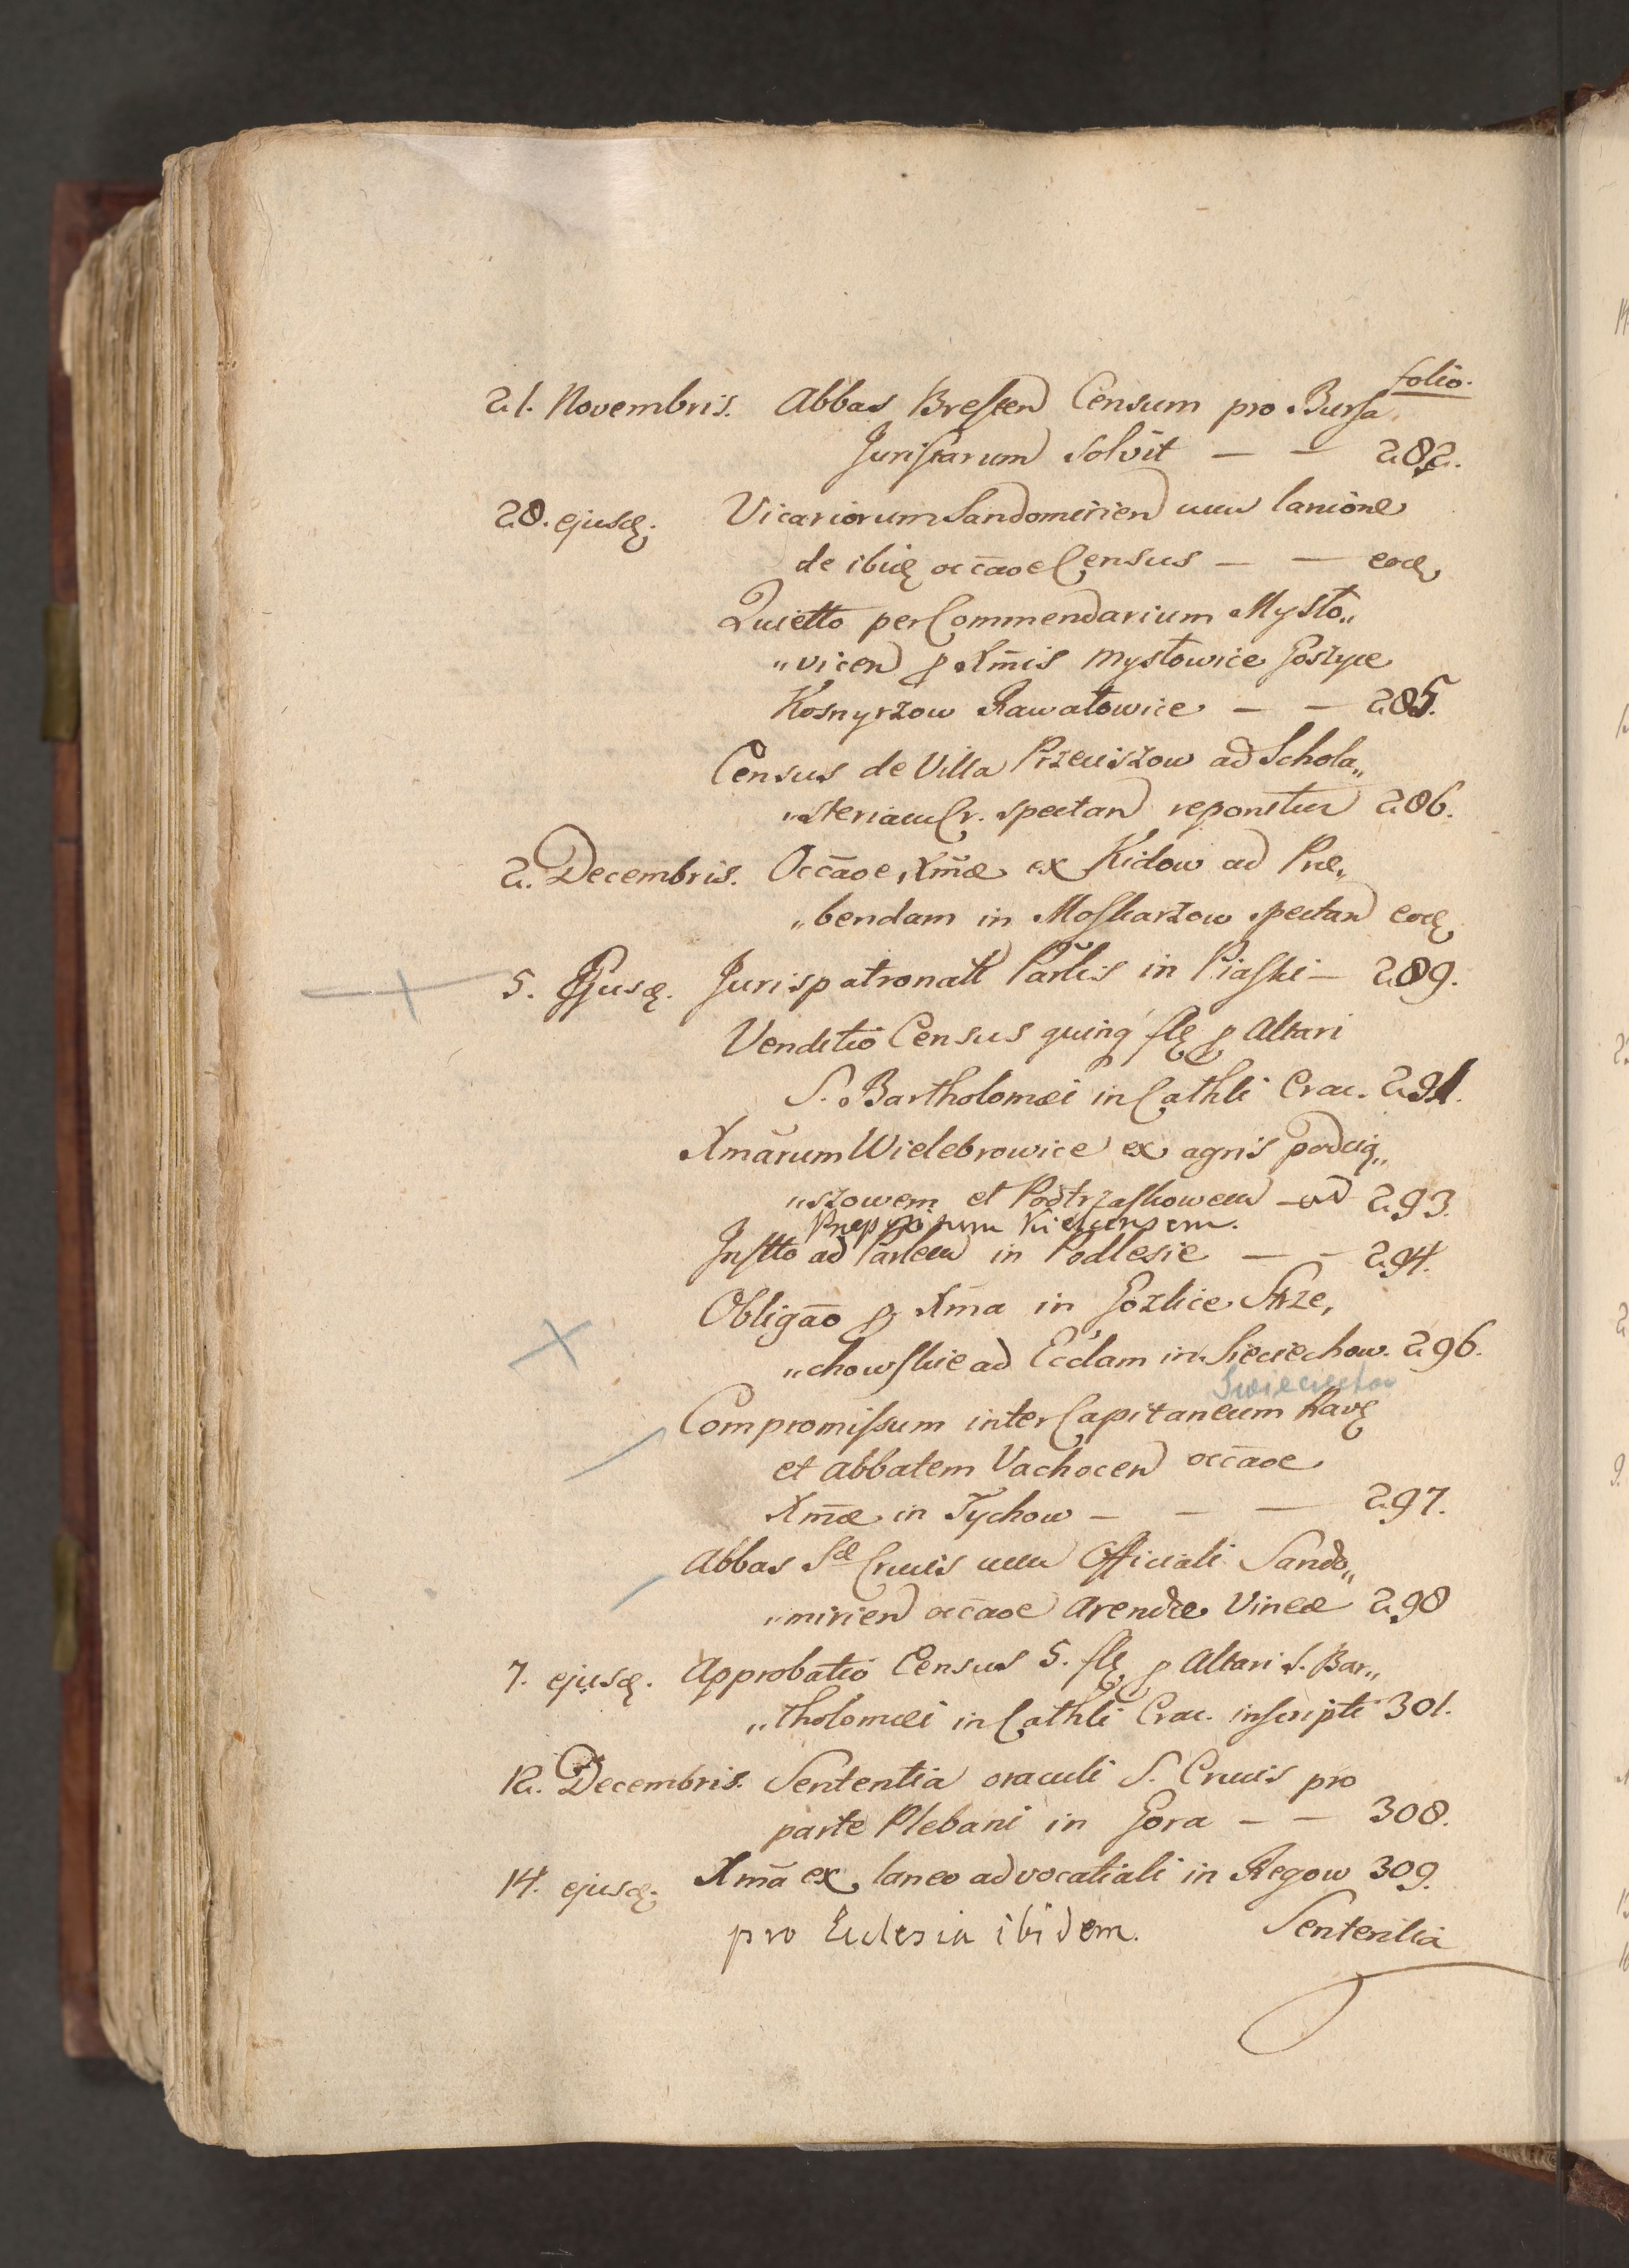 folio.
21. Novembris. Abbas Bresten Censum pro Bursa
Juristarum solvit — — 282.
28. ejusd. Vicariorum Sandomirien cum lanione
de ibid occãoe Census — — eod
Quietto per Commendarium Mysło„
„vicen p Xmis Mysłowice Goszyce
Kosnyrzow Rawałowice — — 285.
Census de Villa Przeciszow ad Schola„
„steriam Cr. spectan reponitur 286.
2. Decembris. Occãoe Xmæ ex Kidow ad Præ„
„bendam in Moskarzow spectan eod
5. Ejusd. Jurispatronatt Parlis in Piaski — 289.
Venditio Census quinq fl p Altari
S. Bartholomæi in Cathli Crac. 291.
Xmarum Wielebrowice ex agris podcią„
„szowem et Podtrzaskowem — ad 293.
Præpositum Kielcensem.
Instto ad Parlem in Podlesie — — 294.
Obligão p Xma in Gozlice Strze„
„chowskie ad Ecclam in Sieciechow. 296.
Swieciechow
Compromissum inter Capitaneum Rav
et Abbatem Vachocen occãoe
Xmæ in Tychow — — — 297.
Abbas Sæ Crucis cum Officiali Sando„
„mirien occãoe Arendæ Vineæ 298
7. ejusd. Approbatio Census 5. fl p Altari S. Bar„
„tholomæi in Cathli Crac. inscripti 301.
12. Decembris. Sententia oraculi S. Crucis pro
parte Plebani in Gora — — 308.
14. ejusd. Xma ex laneo advocatiali in Regow 309.
pro Eclesia ibidem. Sententia